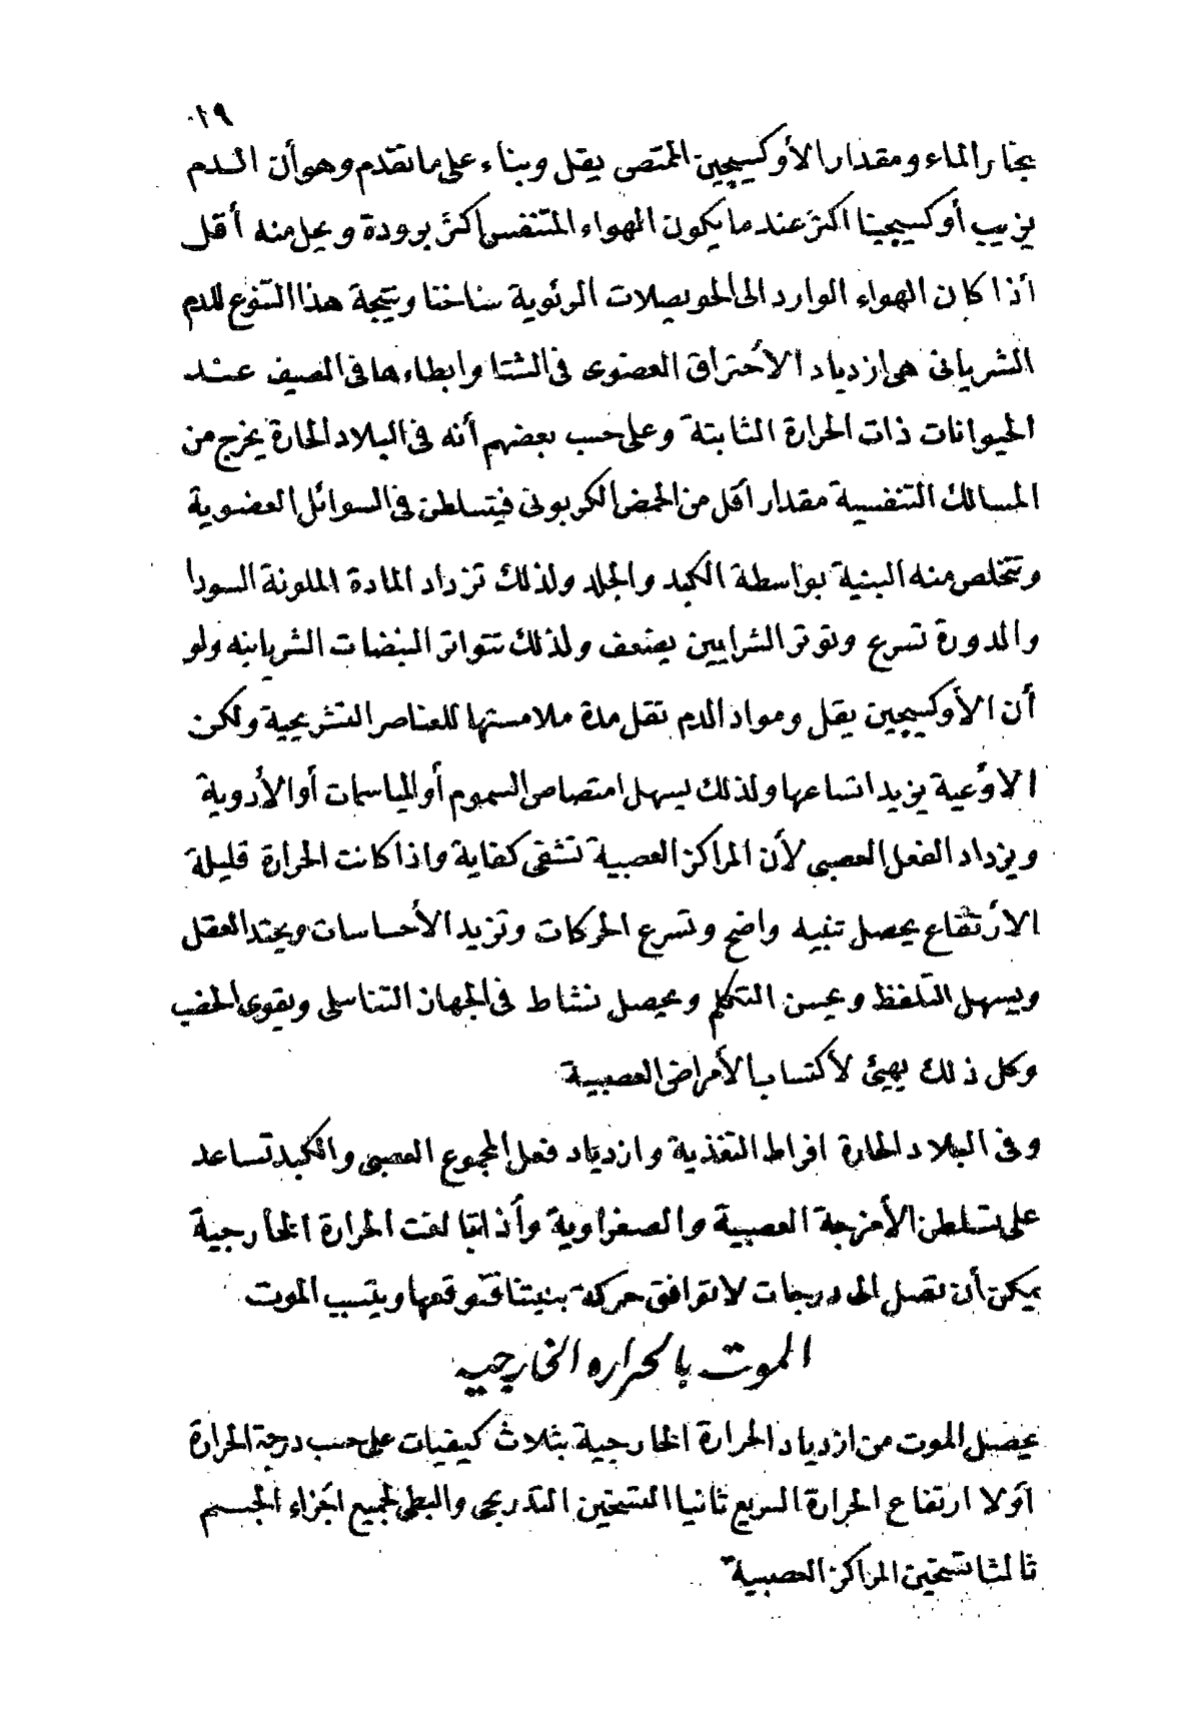 ١٩
بخار الماء ومقدار الأوكسيجين الممتص يقل وبناء على ما تقدم وهو أن الدم
يزيب أوكسيجينا اكثر عند ما يكون الهواء المتنفس اكثر برودة ويحل منه أقل
أذا كان الهواء الوارد الى الحويصلات الرئوية ساخنا ونتيجة هذا التنوع للدم
الشرياني هى ازدياد الأحتراق العضوى فى الشتا وابطاءها فى الصيف عند
الحيوانات ذات الحرارة الثابتة وعلى حسب بعضهم أنه فى البلاد الحارة يخرج من
المسالك التنفسية مقدار أقل من الحمض الكربونى فيتسلطن فى السوائل العضوية
وتتخلص منه البنية بواسطة الكبد والجلد ولذلك تزداد المادة الملونة السودا
والدورة تسرع وتوتر الشرايين يضعف ولذلك تتواتر النبضات الشريانيه ولو
أن الأوكسيجين يقل ومواد الدم تقل مدة ملامستها للعناصر التشريحية ولكن
الأوعية يزيد اتساعها ولذلك يسهل امتصاص السموم أو المياسمات أو الأدوية
ويزداد الفعل العصبى لأن المراكز العصبية تشقى كفاية واذا كانت الحرارة قليلة
الأرتفاع يحصل تنبيه واضح وتسرع الحركات وتزيد الأحساسات ويحتد العقل
ويسهل التلفظ ويحسن التكلم ويحصل نشاط فى الجهاز التناسلى ويقوى الخصب
وكل ذلك يهيئ لأكتساب الأمراض العصبية
وفى البلاد الحارة افراط التغذية وازدياد فعل المجموع العصبى والكبد تساعد
على تسلطن الأمزجة العصبية والصفراوية وأذا بالفت الحرارة الخارجية
يمكن أن تصل الى درجات لا توافق حركة بنيتنا فتوقعها ويتسبب الموت
الموت بالحراره الخارجيه
يحصل الموت من ازدياد الحرارة الخارجية بثلاث كيفيات على حسب درجة الحرارة
أولا ارتفاع الحرارة السريع ثانيا التسخين التدريجى والبطى لجميع اجزاء الجسم
ثالثا تسخين المراكز العصبية